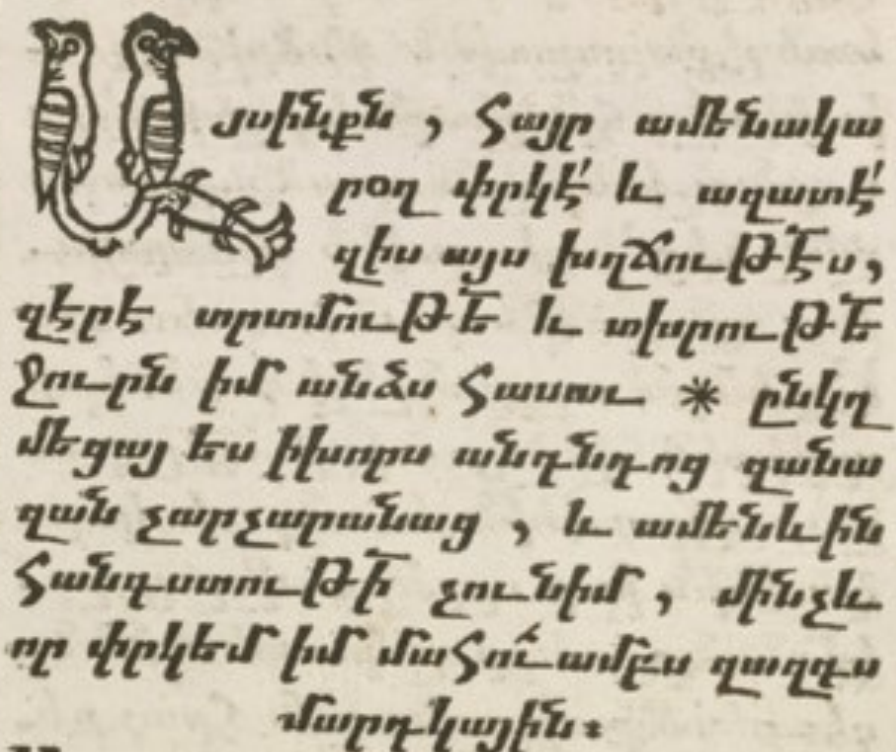 Այսինքն , Հայր ամենակա
րօղ փրկէ՛ և ազատէ՛
զիս այս խղճութՒ̅ես,
զէրէ տրտմութՒ̅ե և տխրութՒ̅ե
Ջուրն իմ անձս Հասաւ * ընկղ
մեցայ ես ի խորս անդնդոց զանա
զան չարչարանաց , և ամենևին
ՀանգստութՒ̅ի չունիմ , մինչև
որ փրկեմ իմ մաՀու՛ամբս զազգս
մարդկային։